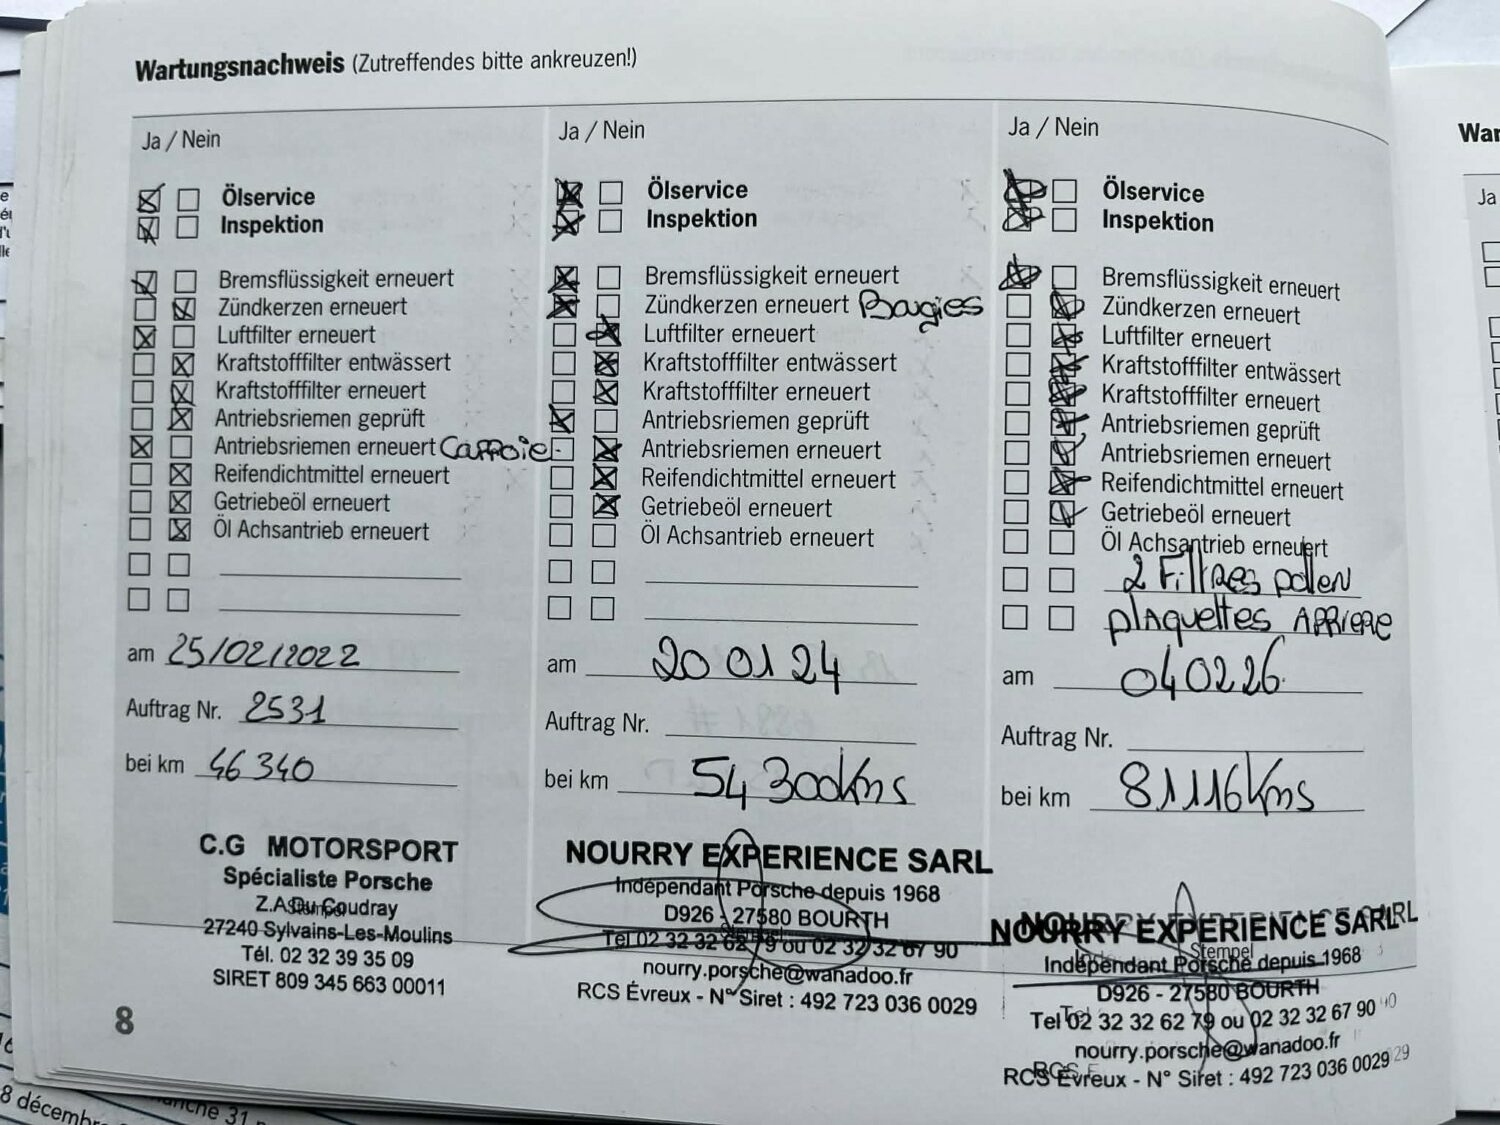 Wartungsnachweis (Zutreffendes bitte ankreuzen!)
Ja / Nein
Ölservice
Inspektion
Bremsflüssigkeit erneuert
Zündkerzen erneuert
Luftfilter erneuert
Kraftstofffilter entwässert
Kraftstofffilter erneuert
Antriebsriemen geprüft
Antriebsriemen erneuert
Reifendichtmittel erneuert
Getriebeöl erneuert
Öl Achsantrieb erneuert
am 25/02/2022
Auftrag Nr. 2531
bei km 46 340
C.G MOTORSPORT
Spécialiste Porsche
Z.A Du Coudray
Stempel
27240 Sylvains-Les-Moulins
Tél. 02 32 39 35 09
SIRET 809 345 663 00011
8
Ja / Nein
Ölservice
Inspektion
Bremsflüssigkeit erneuert
Zündkerzen erneuert Bougies
Luftfilter erneuert
Kraftstofffilter entwässert
Kraftstofffilter erneuert
Antriebsriemen geprüft
Antriebsriemen erneuert
Reifendichtmittel erneuert
Getriebeöl erneuert
Öl Achsantrieb erneuert
am 20 01 24
Auftrag Nr.
bei km 54 300 Kms
NOURRY EXPERIENCE SARL
Indépendant Porsche depuis 1968
D926 - 27580 BOURTH
Stempel
Tel 02 32 32 62 79 ou 02 32 32 67 90
nourry.porsche@wanadoo.fr
RCS Évreux - N° Siret : 492 723 036 0029
Ja / Nein
Ölservice
Inspektion
Bremsflüssigkeit erneuert
Zündkerzen erneuert
Luftfilter erneuert
Kraftstofffilter entwässert
Kraftstofffilter erneuert
Antriebsriemen geprüft
Antriebsriemen erneuert
Reifendichtmittel erneuert
Getriebeöl erneuert
Öl Achsantrieb erneuert
2 Filtres pollen
plaquettes ARRIERE
am 04 02 26
Auftrag Nr.
bei km 81116 Kms
NOURRY EXPERIENCE SARL
Stempel
Indépendant Porsche depuis 1968
D926 - 27580 BOURTH
Tel 02 32 32 62 79 ou 02 32 32 67 90
nourry.porsche@wanadoo.fr
RCS Évreux - N° Siret : 492 723 036 0029
War
Ja
8 décemb
manche 31